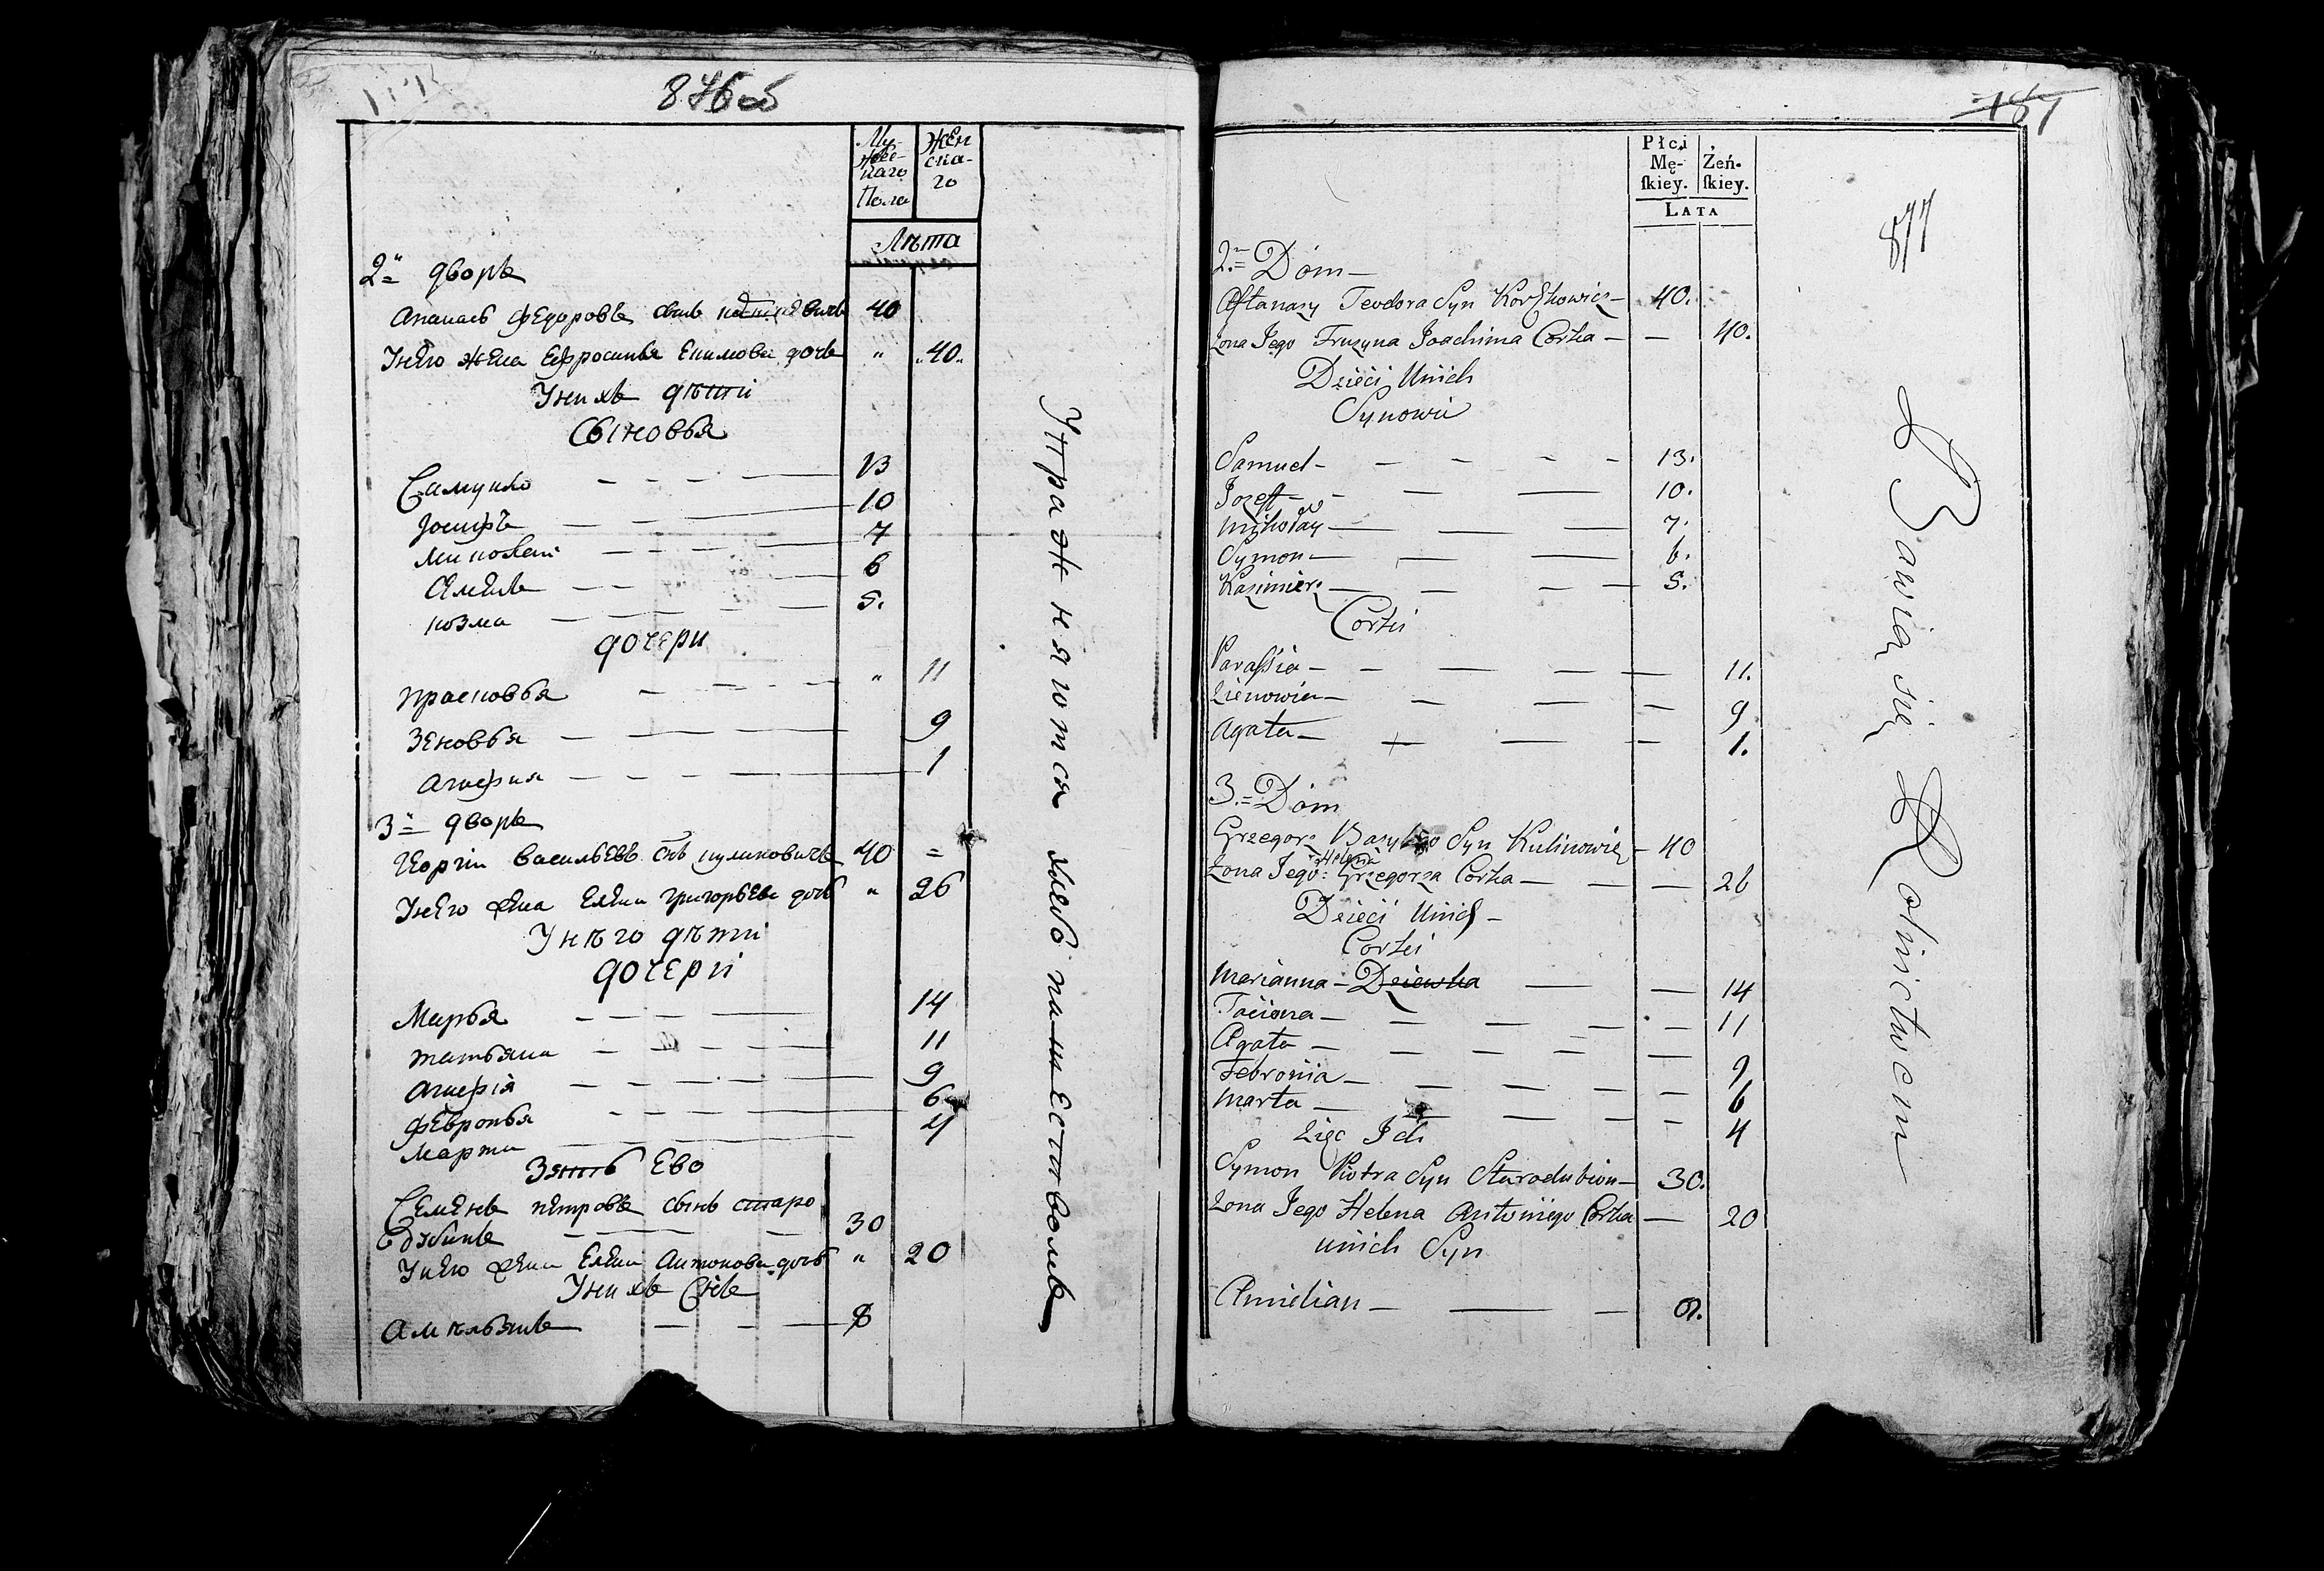 876 об
Му-
жес-
каго
Пола
Жен
ска-
го
Лѣта
2й дворъ
Апанасъ Федоровъ сынъ 40
У него жена Ефросинья Екимова дочь " 40
У нихъ дѣти
Сыновья
Самуило 13
Іосифъ 10
Миколай 7
Семенъ 6
Козма 5.
дочери
Прасковья " 11
Зеновья 9
Агафия 1
3й дворъ
Георгіи Васильевъ снъ Куликовичъ 40 =
У него жена Елена Григорьева дочь " 26
У него дѣти
дочери
Марья 14
Татьяна 11
Агафія 9
Февронья 6
Марта 4
Зять Ево
Семенъ Петровъ сынъ Старо
дубинъ 30
У него жена Елена Антонова дочь " 20
У нихъ Снъ
Амельянъ 8
Упражняются хлебопашествомъ
187
877
Płci
Mę-
ſkiey.
Żeń-
ſkiey.
LATA
2. Dóm
Aftanazy Teodora Syn 40.
Zona Jego Fruzyna Joachima Corka 40.
Dzieci Unich
Synowie
Samuel 13.
Jozeff 10.
Mikołay 7.
Symon 6.
Kazimierz 5.
Corki
Parassia 11.
Zienowia 9
Agata 1.
3. Dóm
Grzegorz Bazylego Syn Kulinowicz 40
Helena
Zona Jego Grzegorza Corka 26
Dzieci Unich
Corki
Marianna Dziewka 14
Taciana 11
Agata 9
Febronia 6
Marta 4
Zięc Ich
Symon Piotra Syn Starodubion 30.
Zona Jego Helena Antoniego Corka 20
unich Syn
Amielian 8.
Bawią się Rolnictwem